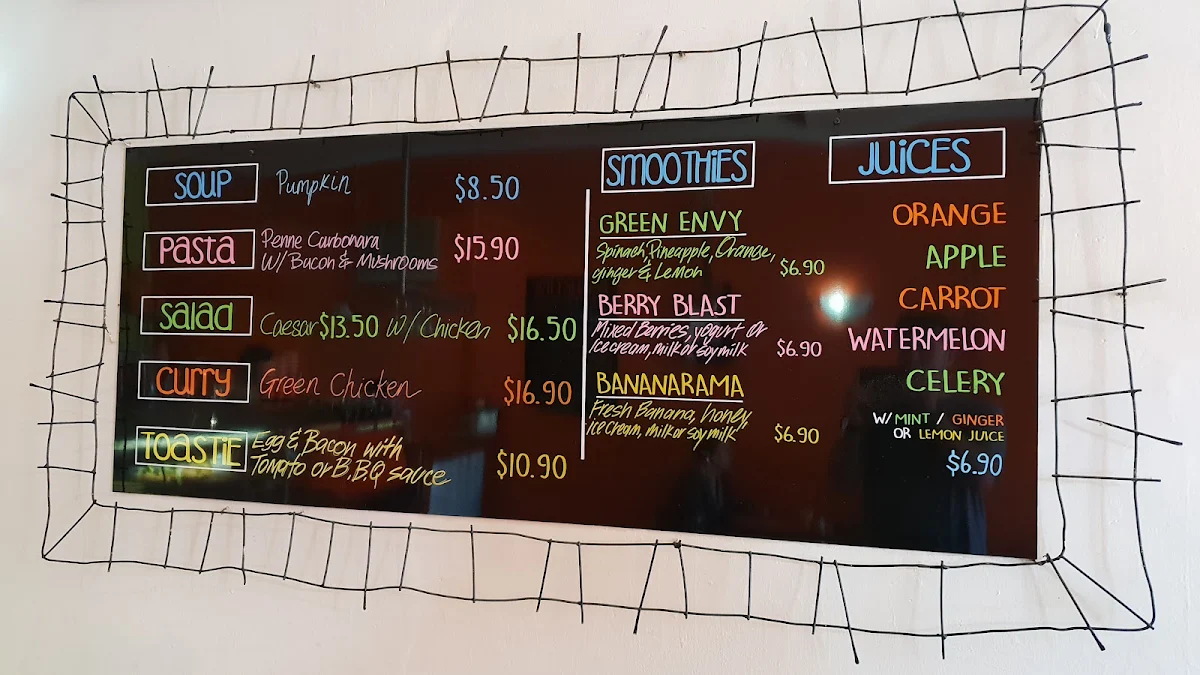 SOUP Pumpkin $8.50
Pasta Penne Carbonara
W/ Bacon & Mushrooms $15.90
Salad Caesar $13.50 W/ Chicken $16.50
CURRY Green Chicken $16.90
TOASTiE Egg & Bacon with
Tomato or B.B.Q sauce $10.90
SMOOTHiES
GREEN ENVY
Spinach, Pineapple, Orange,
ginger & Lemon $6.90
BERRY BLAST
Mixed Berries, yogurt or
Ice cream, milk or soy milk $6.90
BANANARAMA
Fresh Banana, honey,
Ice Cream, milk or soy milk $6.90
JUiCES
ORANGE
APPLE
CARROT
WATERMELON
CELERY
W/ MINT / GINGER
OR LEMON JUICE
$6.90